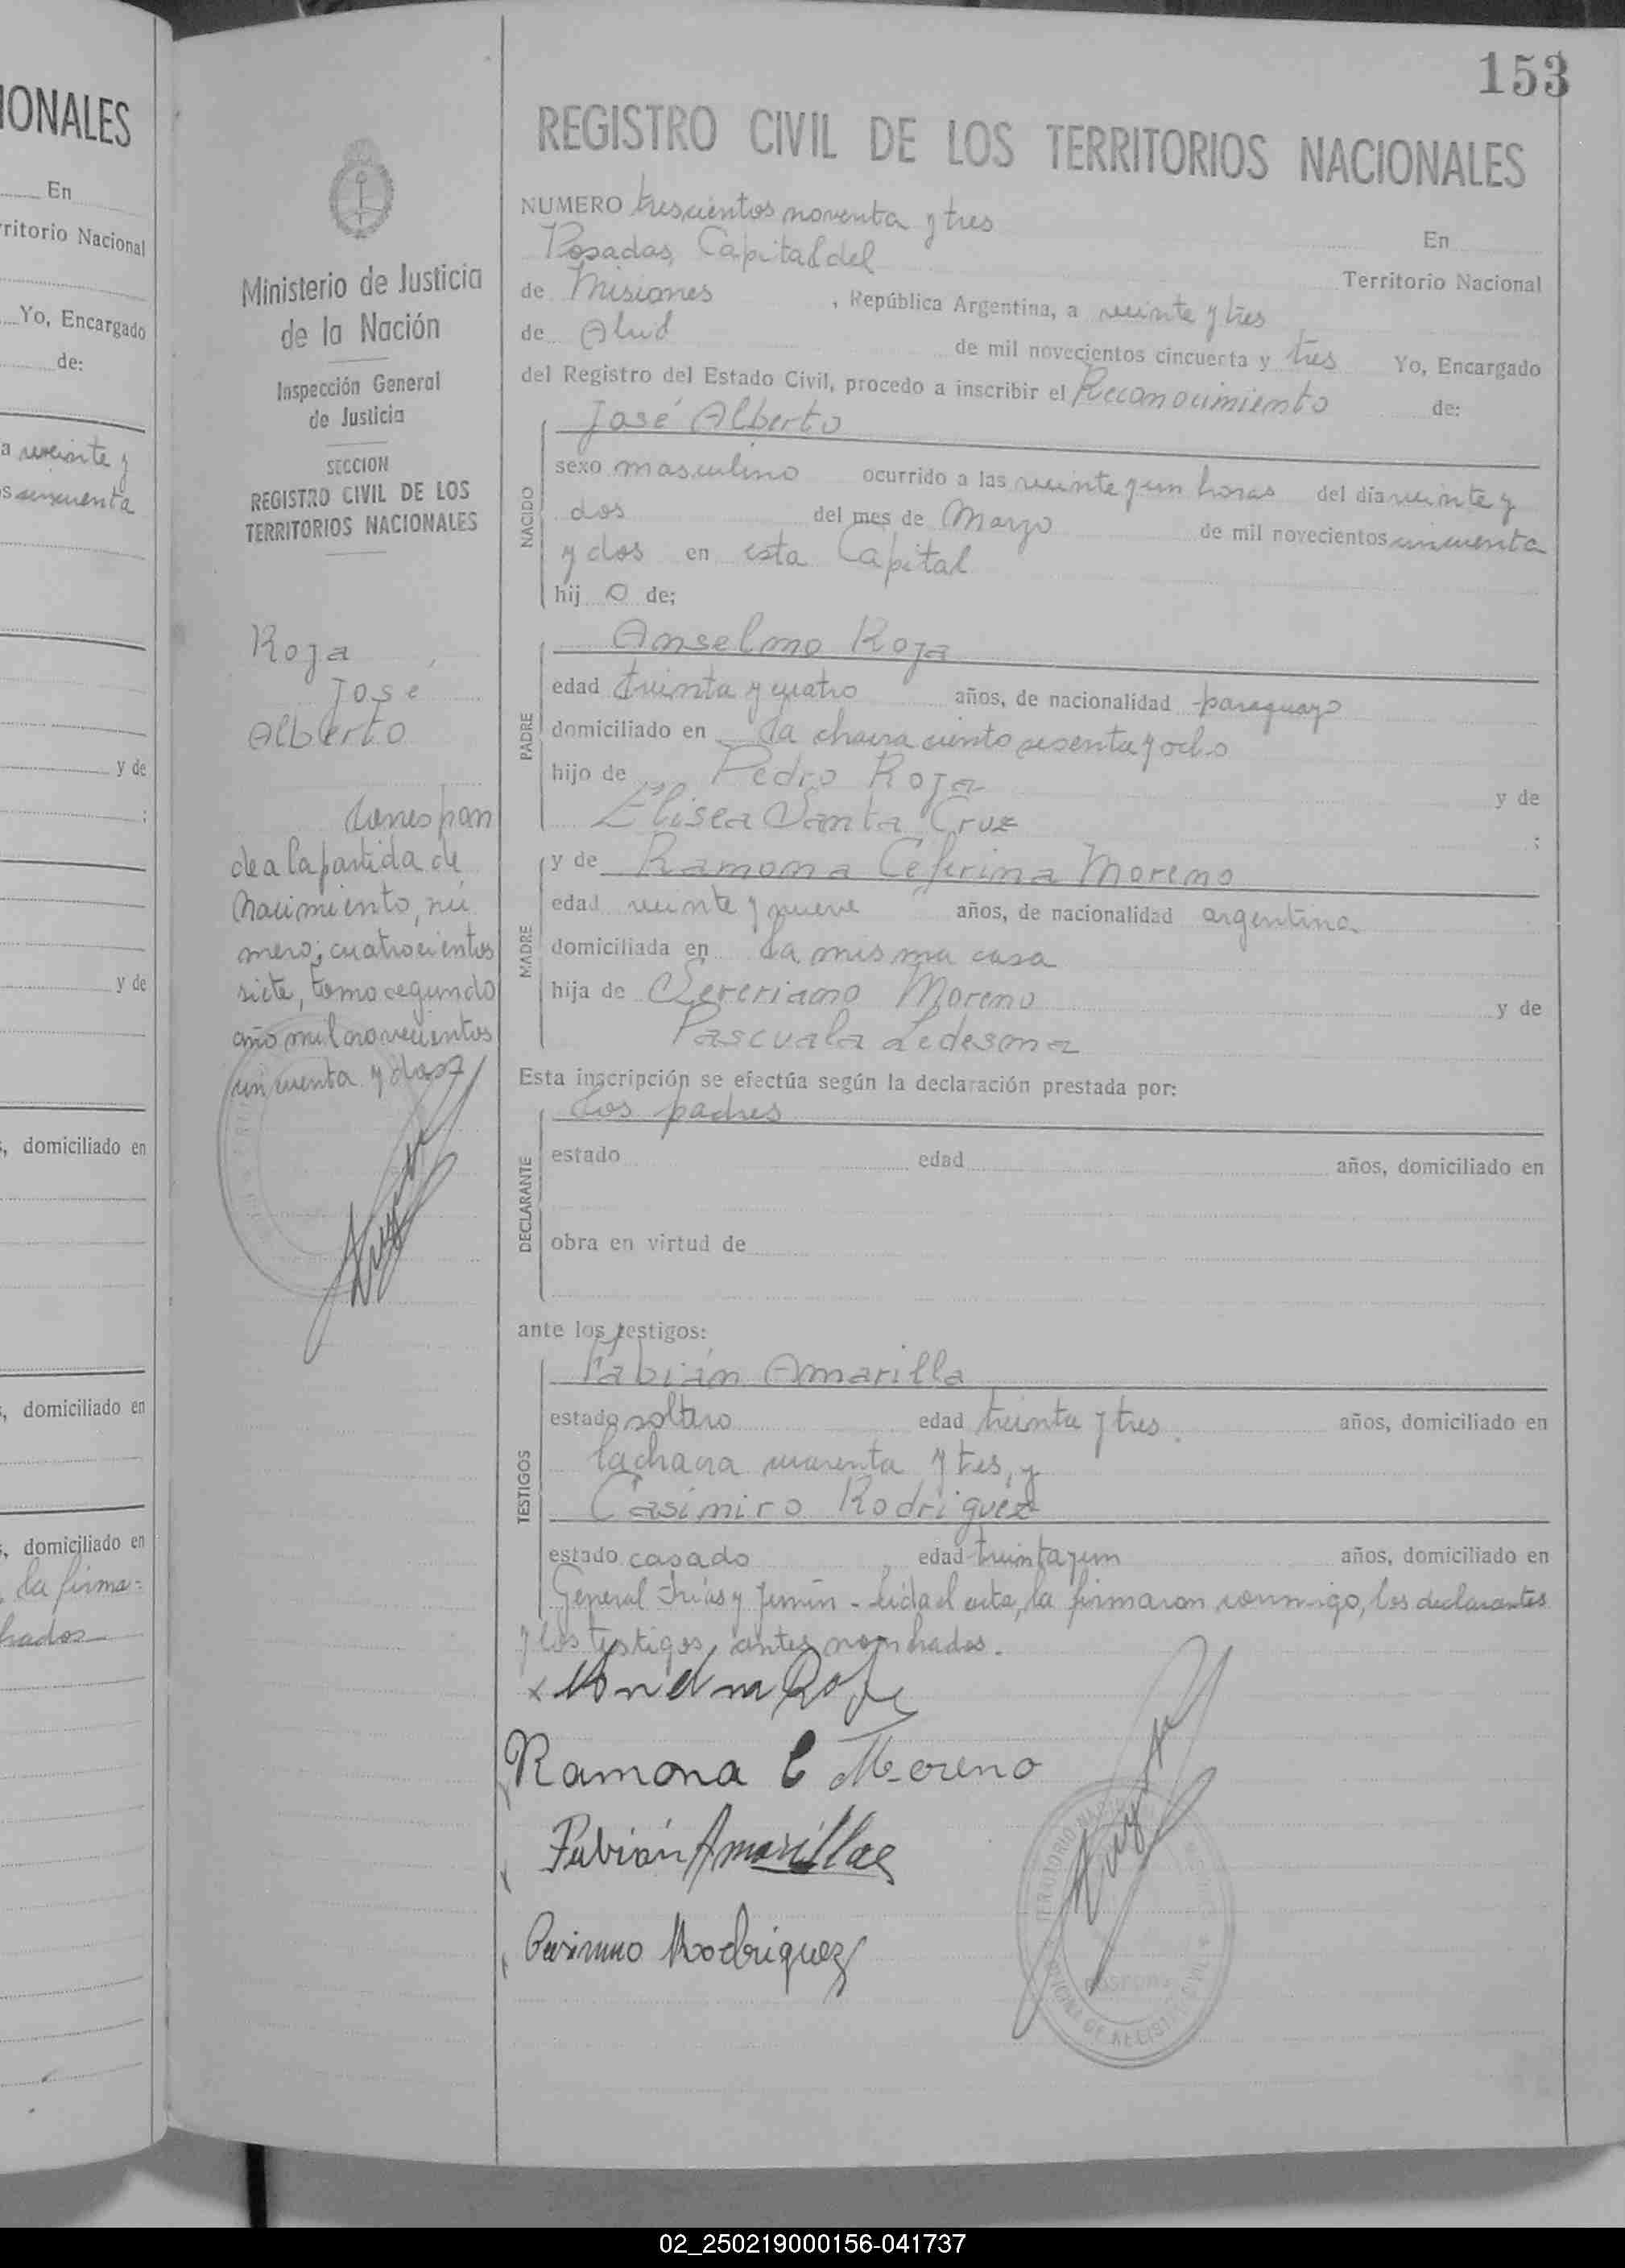 153
IONALES
En
ritorio Nacional
Yo, Encargado
de:
a veinte y
s cincuenta
y de
;
y de
, domiciliado en
, domiciliado en
, domiciliado en
la firma=
brados
Ministerio de Justicia
de la Nación
Inspección General
de Justicia
SECCION
REGISTRO CIVIL DE LOS
TERRITORIOS NACIONALES
Roja
José
Alberto
Correspon
de a la partida de
Nacimiento, nú
mero; cuatrocientos
siete, tomo segundo
año mil novecientos
cincuenta y dos
REGISTRO CIVIL DE LOS TERRITORIOS NACIONALES
NUMERO trescientos noventa y tres En
Posadas, Capital del Territorio Nacional
de Misiones , República Argentina, a veinte y tres
de Abril de mil novecientos cincuenta y tres Yo, Encargado
del Registro del Estado Civil, procedo a inscribir el Reconocimiento de:
NACIDO
José Alberto
sexo masculino ocurrido a las veinte y un horas del día veinte y
dos del mes de Marzo de mil novecientos cincuenta
y dos en esta Capital
hij o de;
PADRE
Anselmo Roja
edad treinta y cuatro años, de nacionalidad paraguayo
domiciliado en la chacra ciento sesenta y ocho
hijo de Pedro Roja y de
Elisea Santa Cruz ;
MADRE
y de Ramona Ceferina Moreno
edad veinte y nueve años, de nacionalidad argentina
domiciliada en la misma casa
hija de Severiano Moreno y de
Pascuala Ledesma
Esta inscripción se efectúa según la declaración prestada por:
DECLARANTE
los padres
estado edad años, domiciliado en
obra en virtud de
ante los testigos:
TESTIGOS
Fabián Amarilla
estado soltero edad treinta y tres. años, domiciliado en
la chacra cuarenta y tres, y
Casimiro Rodriguez
estado casado edad treinta y un años, domiciliado en
General Frías y Junín - Leída el acta, la firmaron conmigo, los declarantes
y los testigos antes nombrados.
Ramona C Moreno
Fabián Amarilla
Casimiro Rodriguez
POSADAS
02_250219000156-041737